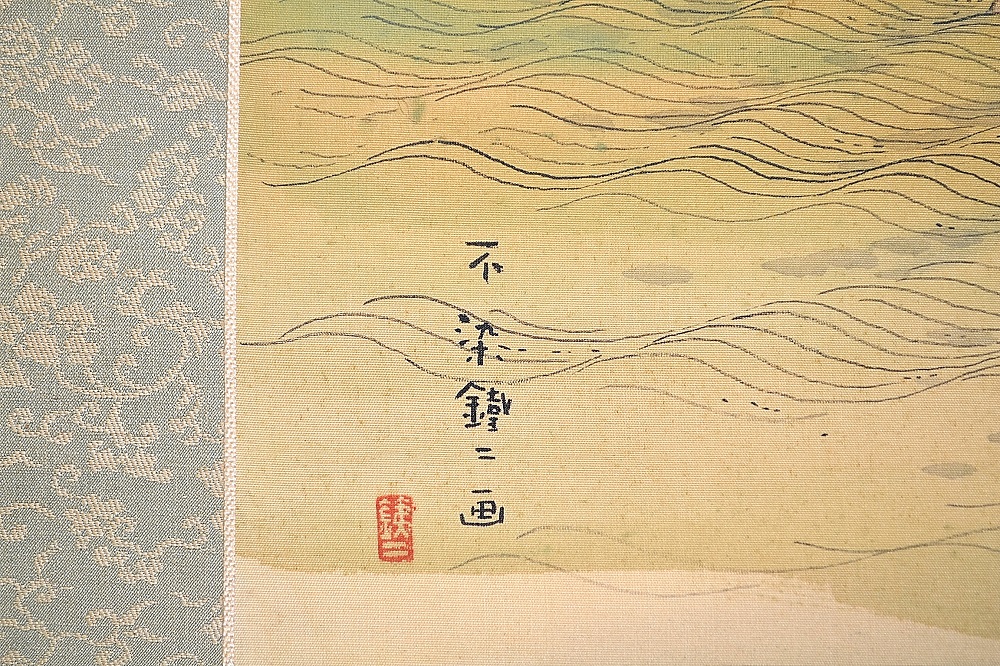 不染鐵二画
鐵二